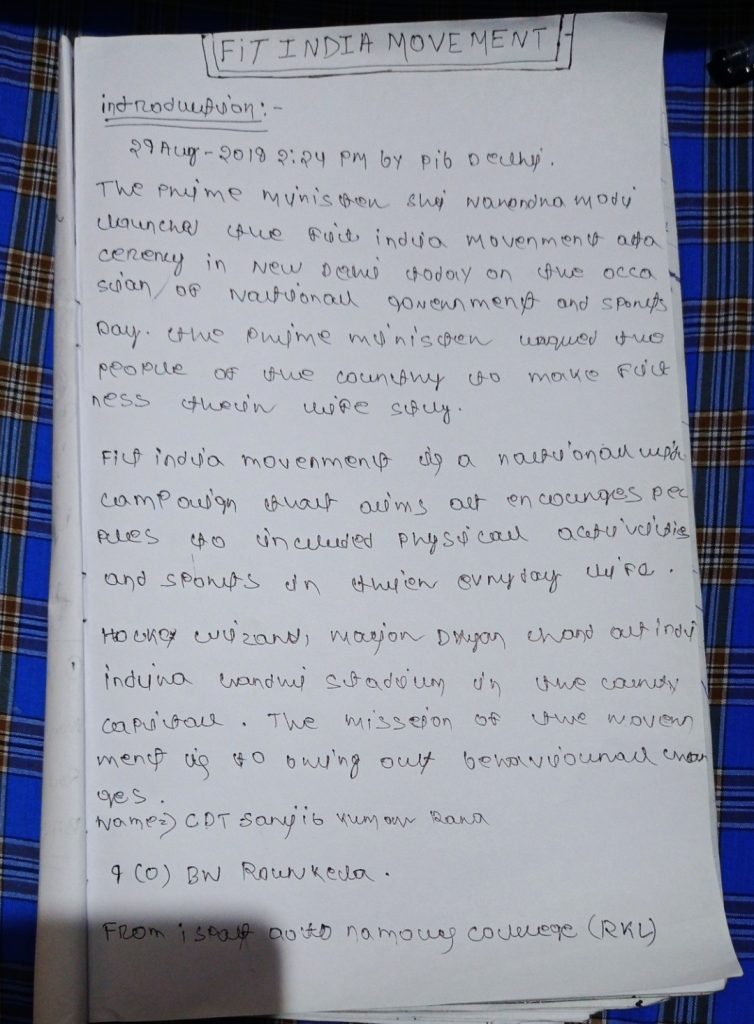 FIT INDIA MOVEMENT
introduction:-
29 Aug - 2019 2:24 PM by Pib Delhi.
The Prime Minister Shri Narendra Modi
launched the Fit india Movenment at a
in New Delhi today on the occa
sion of National governments and sports
Day. the Prime minister urqued the
people of the country to make Fit
ness their life styly.
Fit india movenment is a national
campaign that aims at encourges peo
ples to included physical activities
and sports in their evryday life.
Hockey wizard, major Dhyan chand at indi
indira Gandhi stadium in the country
capital. The mission of the movem
ment is to bring out behavioural chan
ges.
Name=) CDT Sanjib Kumar Rana
9 (O) BN Rourkela.
From ispat auto namous college (RKL)